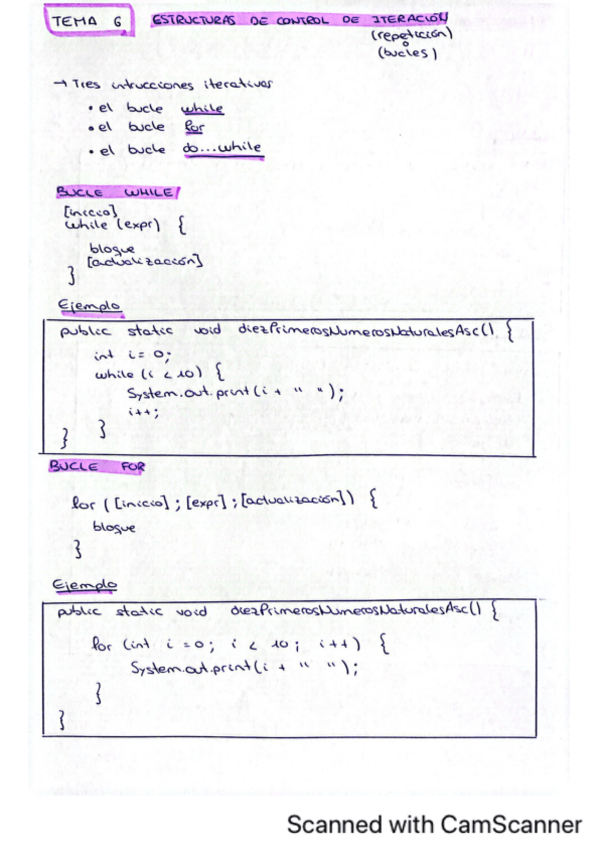 TEMA 6 ESTRUCTURAS DE CONTROL DE ITERACIÓN
(repetición)
o
(bucles)
→ Tres intrucciones iterativas
• el bucle while
• el bucle for
• el bucle do...while
BUCLE WHILE
[inicio]
while (expr) {
bloque
[actualización]
}
Ejemplo
public static void diezPrimerosNumerosNaturalesAsc() {
int i = 0;
while (i < 10) {
System.out.print(i + " ");
i++;
}
}
BUCLE FOR
for ([inicio] ; [expr] ; [actualización]) {
bloque
}
Ejemplo
public static void diezPrimerosNumerosNaturalesAsc() {
for (int i = 0; i < 10; i++) {
System.out.print(i + " ");
}
}
Scanned with CamScanner